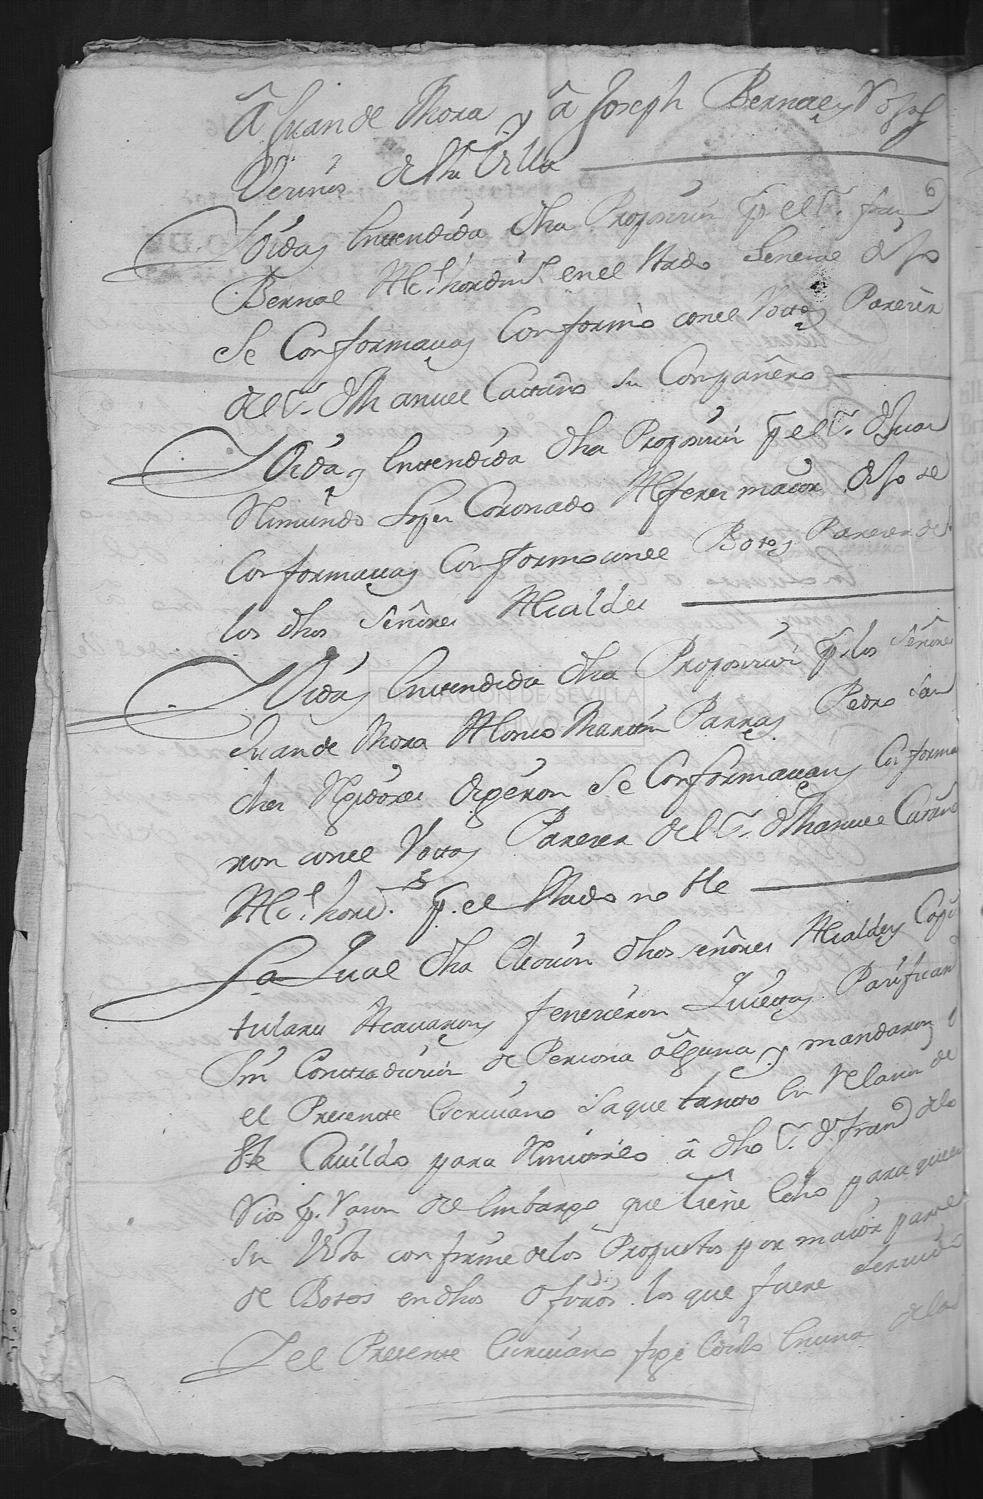 â Juan de Mora y â Joseph Bernal y
Vecinos de sta Villa
Oida y entendida dha Proposicion p. el S. fran.co
Bernal Alc.e hordin.o en el Stado General dijo
se Conformava y Conformò con el Votto y Parecer
del S. Dn Manuel Cattaño su Compañero
Oida y entendida dha Proposicion p. el S. Dn Juan
Nimundo Lopez Coronado Alferez maior dijo se
Conformava y Conformo con el Boto y Parecer de
los dhos Señores Alcaldes
Oida y entendida dha Proposicion p. los Señores
Juan de Mora Alonso Martin Parra y Pedro San
ches Rexidores digeron se Conformavan y Conforma
ron con el Votto y Parecer del S. Dn Manuel Cataño
Alc.e hord.o p. el Stado noble
La Qual dha Elecion dhos señores Alcaldes Capi
tulares Acavaron y fenecieron Quietta y Pacifican
Sin Contradicion de Persona alguna y mandaron
el Presente Escrivano saque tanto en Relacion de
Ste Cavildo para Remitirlo â dho S. Dn fran.co de los
Rios p. Raron de embargo que tiene echo para que en
su Vista confirme de los Propuestos por maior parte
de Botos en dhos oficios los que fuere servido
Y el Presente Escrivano fige Cedula en una de las
DIPUTACIÓN DE SEVILLA
ARCHIVO